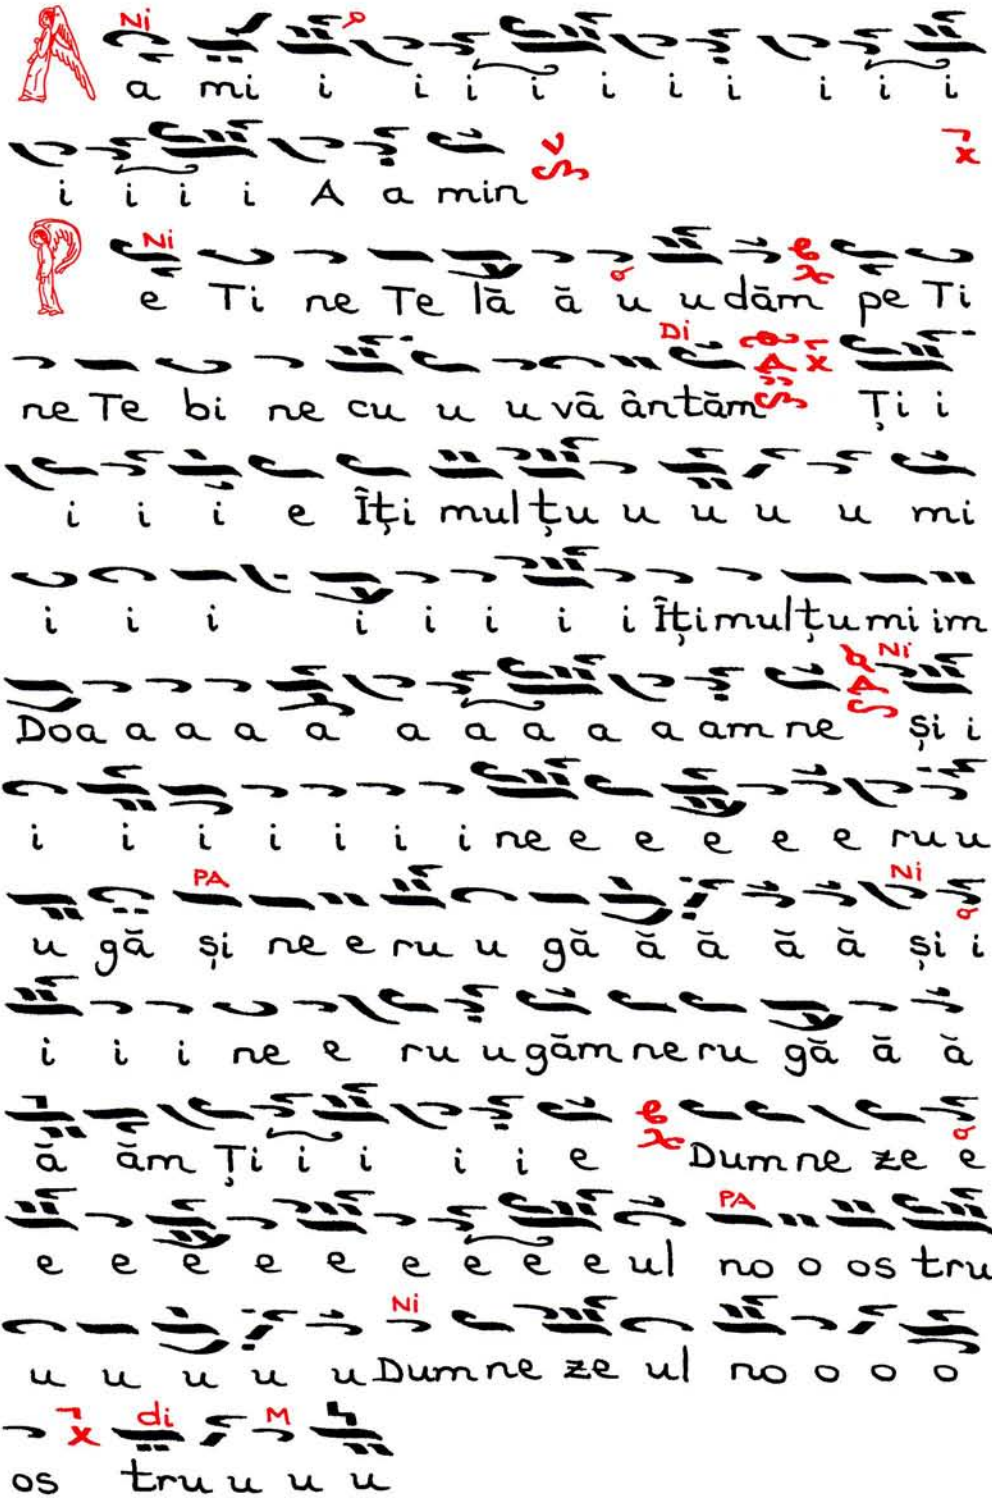 Ni
A a mi i i i i i i i i i i
i i i i A a min
Ni
P e Ti ne Te lă ă u u dăm pe Ti
Di
ne Te bi ne cu u u vâ ântăm Ți i
i i i e Îți mulțu u u u u mi
i i i i i i i i Îțimulțumi im
Ni
Doa a a a a a a a a a am ne și i
i i i i i i i ne e e e e e ru u
PA Ni
u gă și ne e ru u gă ă ă ă ă și i
i i i ne e ru u găm ne ru gă ă ă
ă ăm Ți i i i i e Dum ne ze e
PA
e e e e e e e e e ul no o os tru
Ni
u u u u u Dum ne ze ul no o o o
di M
os tru u u u